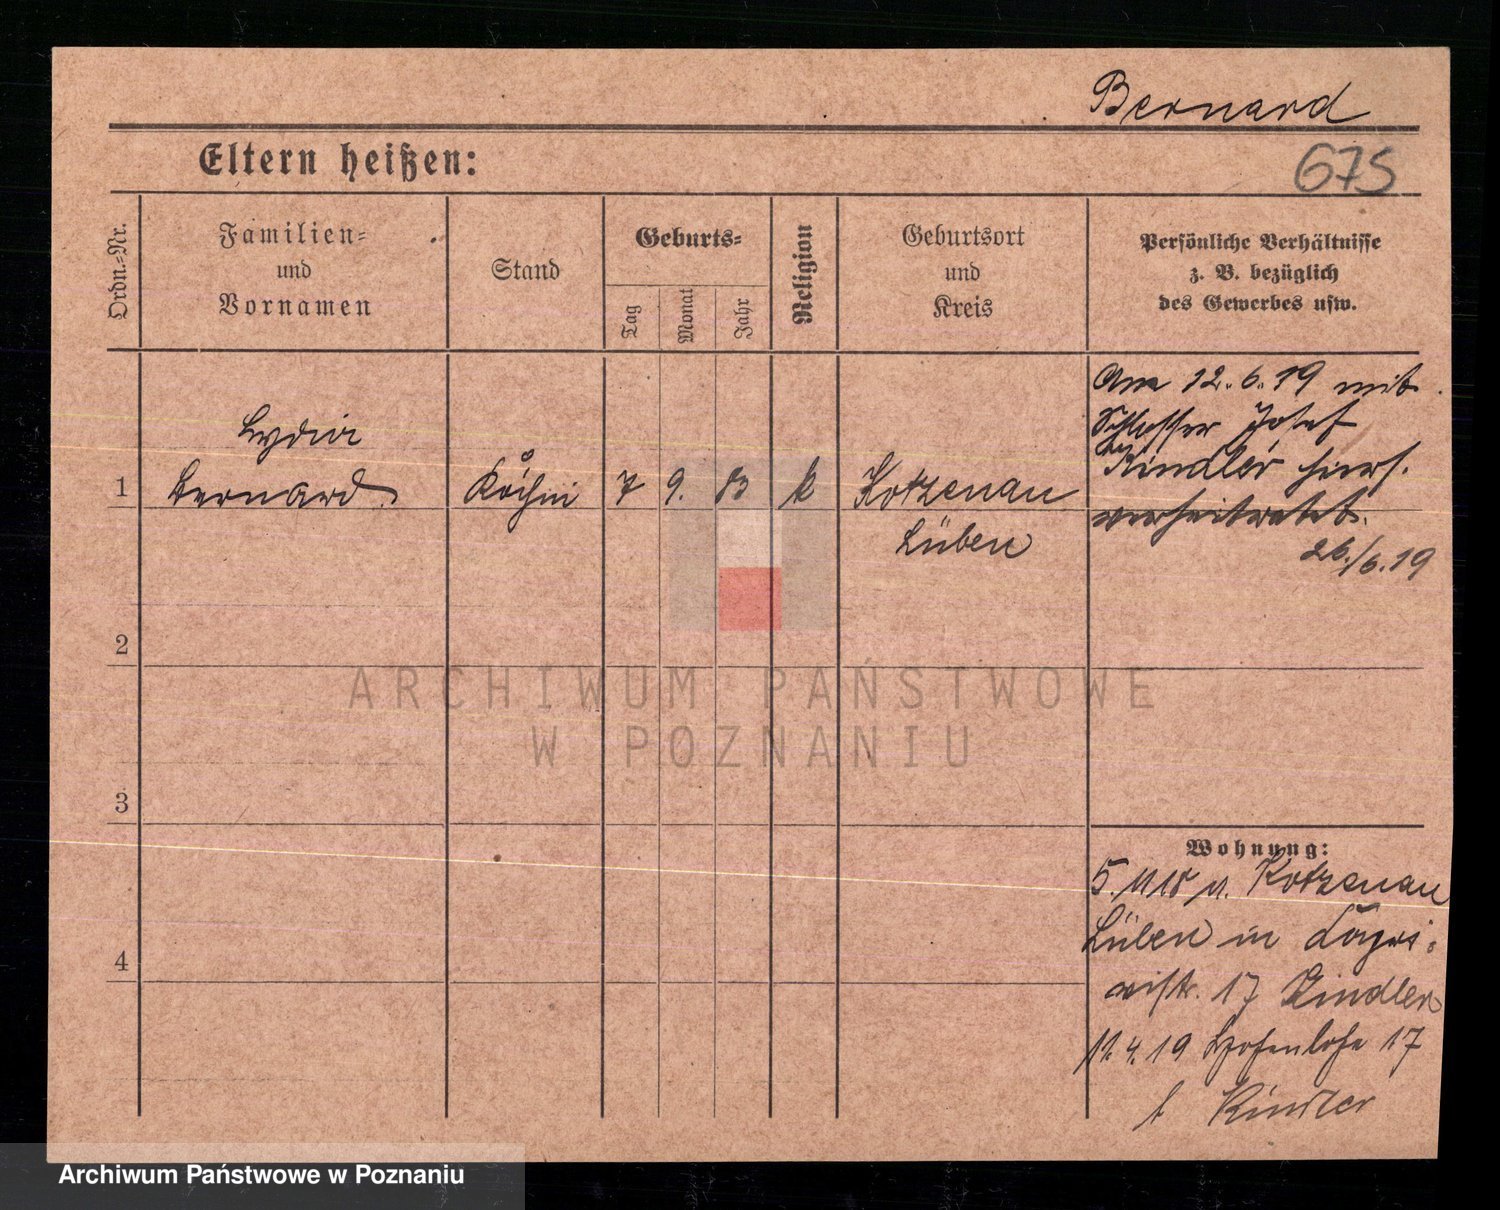 Bernard
Eltern heißen:
675
Ordn.=Nr.
Familien=
und
Vornamen
Stand
Geburts=
Tag
Monat
Jahr
Religion
Geburtsort
und
Kreis
Persönliche Verhältnisse
z. B. bezüglich
des Gewerbes usw.
Am 12.6.19 mit
Schlosser Josef
Kindler hiers.
verheiratet.
26./6.19
Lydia
1 Bernard Köchin 7 9. 83 k Kotzenau
Lüben
2
3
4
ARCHIWUM PAŃSTWOWE
W POZNANIU
Wohnung:
5. 11 18 v. Kotzenau
Lüben in
17 Kindler
11.4.19 Hohenlohe 17
b Kindler
Archiwum Państwowe w Poznaniu